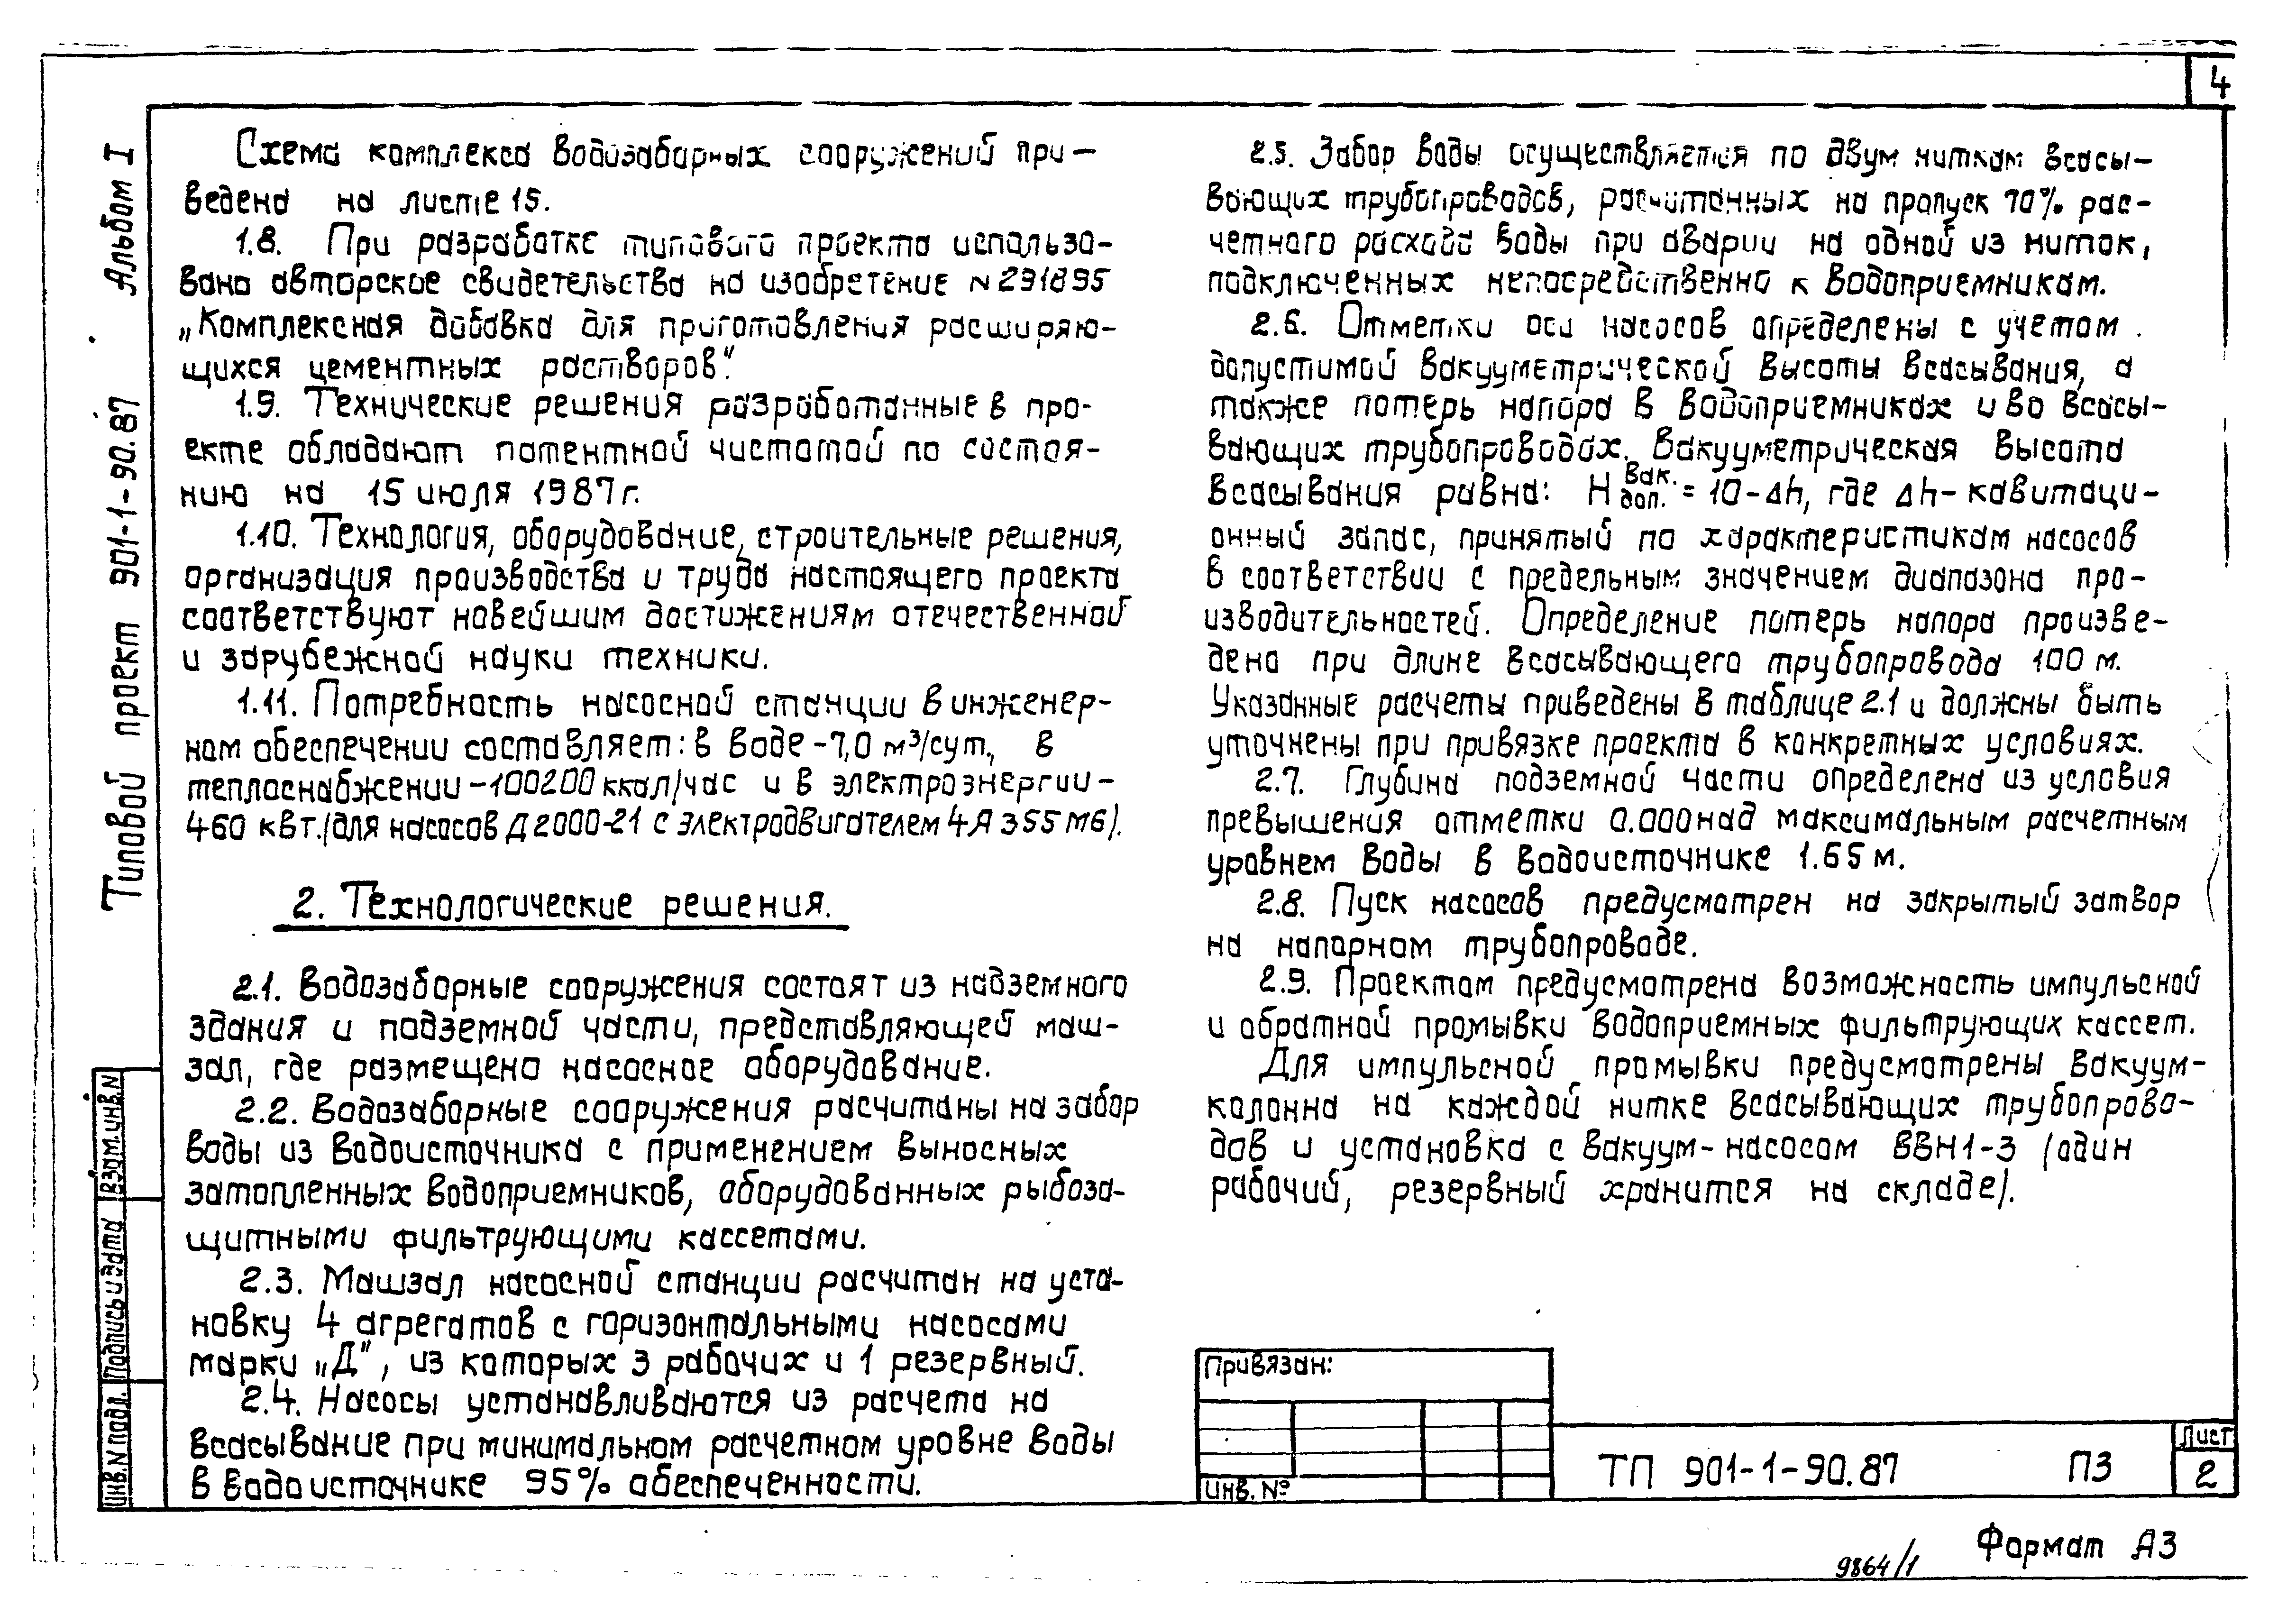 4
Альбом I
Типовой проект 901-1-90.87
Схема комплекса водозаборных сооружений при-
ведена на листе 15.
1.8. При разработке типового проекта использо-
вано авторское свидетельство на изобретение N 291895
„Комплексная добавка для приготовления расширяю-
щихся цементных растворов".
1.9. Технические решения разработанные в про-
екте обладают патентной чистотой по состоя-
нию на 15 июля 1987г.
1.10. Технология, оборудование, строительные решения,
организация производства и труда настоящего проекта
соответствуют новейшим достижениям отечественной
и зарубежной науки техники.
1.11. Потребность насосной станции в инженер-
ном обеспечении составляет: в воде -7,0 м³/сут., в
теплоснабжении -100200 ккал/час и в электроэнергии-
460 квт./для насосов Д2000-21 с электродвигателем 4А 355 М6/.
2. Технологические решения.
2.1. Водозаборные сооружения состоят из надземного
здания и подземной части, представляющей маш-
зал, где размещено насосное оборудование.
2.2. Водозаборные сооружения расчитаны на забор
воды из водоисточника с применением выносных
затопленных водоприемников, оборудованных рыбоза-
щитными фильтрующими кассетами.
2.3. Машзал насосной станции расчитан на уста-
новку 4 агрегатов с горизонтальными насосами
марки „Д", из которых 3 рабочих и 1 резервный.
2.4. Насосы устанавливаются из расчета на
всасывание при минимальном расчетном уровне воды
в водоисточнике 95% обеспеченности.
2.5. Забор воды осуществляется по двум ниткам всасы-
вающих трубопроводов, расчитанных на пропуск 70% рас-
четного расхода воды при аварии на одной из ниток,
подключенных непосредственно к водоприемникам.
2.6. Отметки оси насосов определены с учетом
допустимой вакууметрической высоты всасывания, а
также потерь напора в водоприемниках и во всасы-
вающих трубопроводах. Вакууметрическая высота
всасывания равна: H вак. доп. = 10-Δh, где Δh- кавитаци-
онный запас, принятый по характеристикам насосов
в соответствии с предельным значением диапазона про-
изводительностей. Определение потерь напора произве-
дено при длине всасывающего трубопровода 100 м.
Указанные расчеты приведены в таблице 2.1 и должны быть
уточнены при привязке проекта в конкретных условиях.
2.7. Глубина подземной части определена из условия
превышения отметки 0.000 над максимальным расчетным
уровнем воды в водоисточнике 1.65 м.
2.8. Пуск насосов предусмотрен на закрытый затвор
на напорном трубопроводе.
2.9. Проектом предусмотрена возможность импульсной
и обратной промывки водоприемных фильтрующих кассет.
Для импульсной промывки предусмотрены вакуум-
колонна на каждой нитке всасывающих трубопрово-
дов и установка с вакуум-насосом ВВН1-3 /один
рабочий, резервный хранится на складе/.
Взам. инв. N
Подпись и дата
Инв. N подл.
Привязан:
Инв. №
ТП 901-1-90.87 ПЗ
Лист
2
Формат А3
9864/1